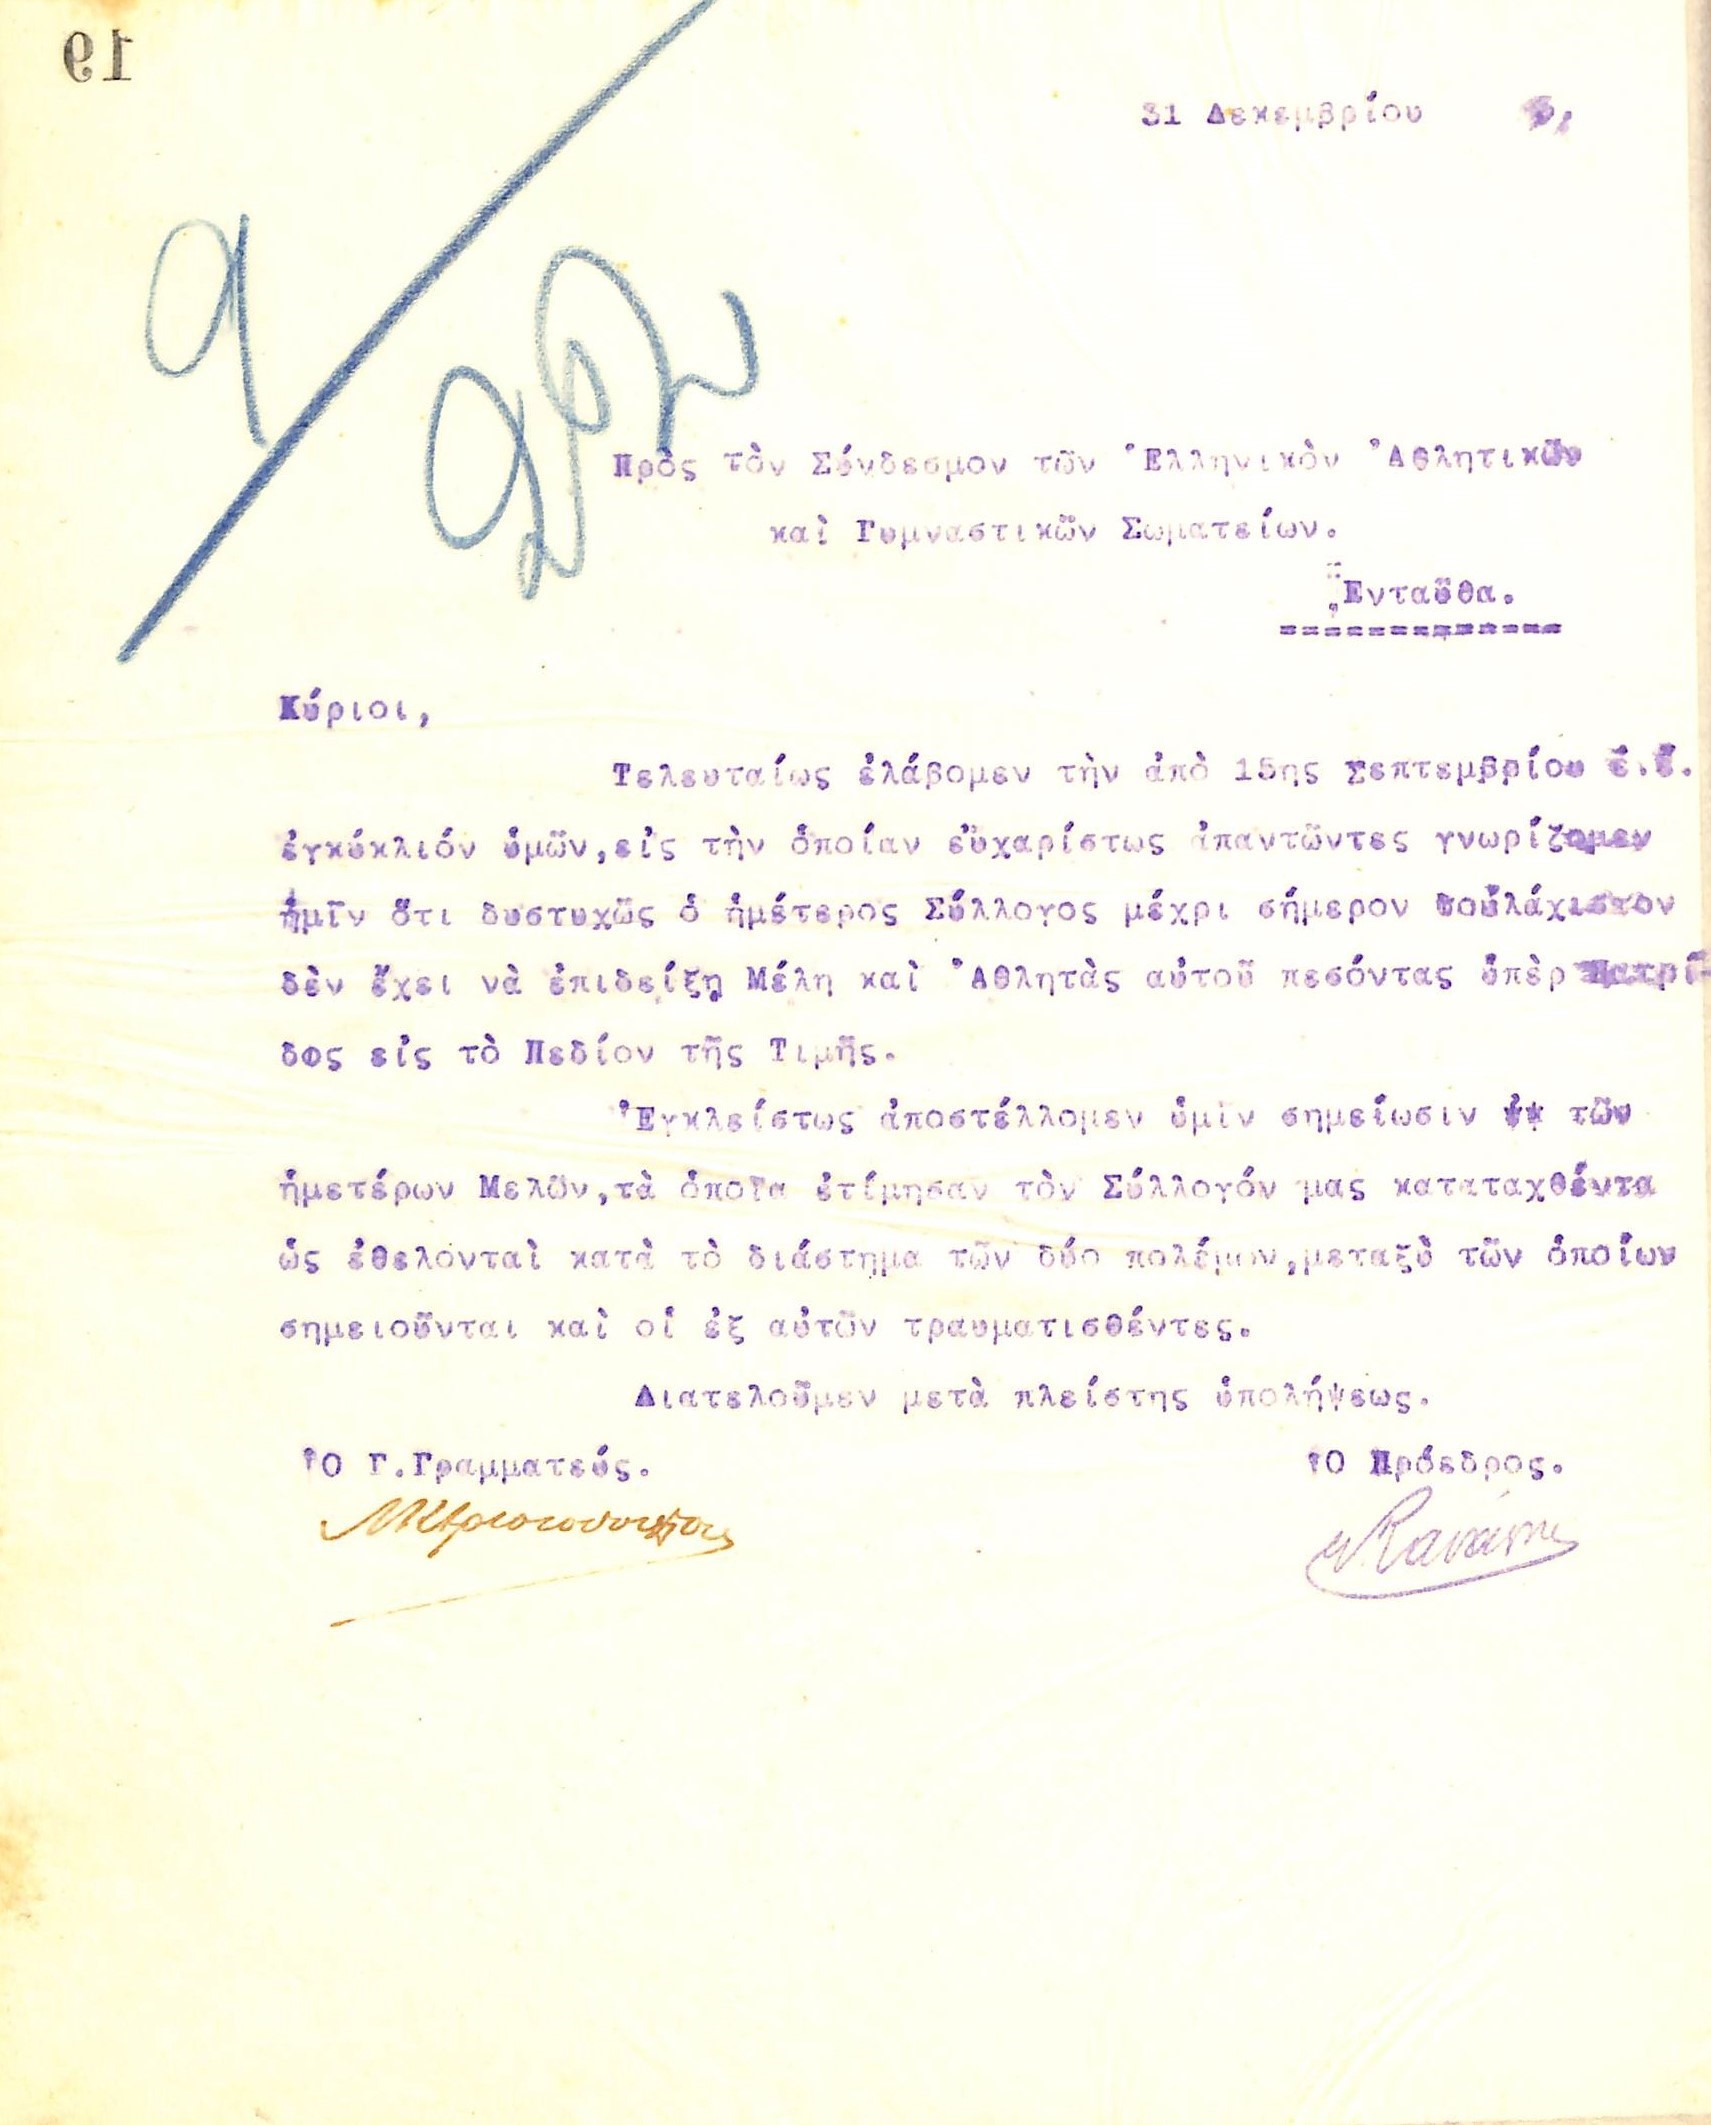 19
31 Δεκεμβρίου 3,
9
Πρὸς τὸν Σύνδεσμον τῶν Ἑλληνικὸν Ἀθλητικῶν
καὶ Γυμναστικῶν Σωματείων.
Ἐνταῦθα.
Κύριοι,
Τελευταίως ἐλάβομεν τὴν ἀπὸ 15ης Σεπτεμβρίου ἔ.ἔ.
ἐγκύκλιόν ὑμῶν,εἰς τὴν ὁποίαν εὐχαρίστως ἀπαντῶντες γνωρίζομεν
ἡμῖν ὅτι δυστυχῶς ὁ ἡμέτερος Σύλλογος μέχρι σήμερον τοὐλάχιστον
δὲν ἔχει νὰ ἐπιδείξῃ Μέλη καὶ Ἀθλητὰς αὐτοῦ πεσόντας ὑπὲρ Πατρί-
δος εἰς τὸ Πεδίον τῆς Τιμῆς.
Ἐγκλείστως ἀποστέλλομεν ὑμῖν σημείωσιν τῶν
ἡμετέρων Μελῶν,τὰ ὁποῖα ἐτίμησαν τὸν Σύλλογόν μας καταταχθέντα
ὡς ἐθελονταὶ κατὰ τὸ διάστημα τῶν δύο πολέμων,μεταξὺ τῶν ὁποίων
σημειοῦνται καὶ οἱ ἐξ αὐτῶν τραυματισθέντες.
Διατελοῦμεν μετὰ πλείστης ὑπολήψεως.
Ὁ Γ.Γραμματεύς. Ὁ Πρόεδρος.